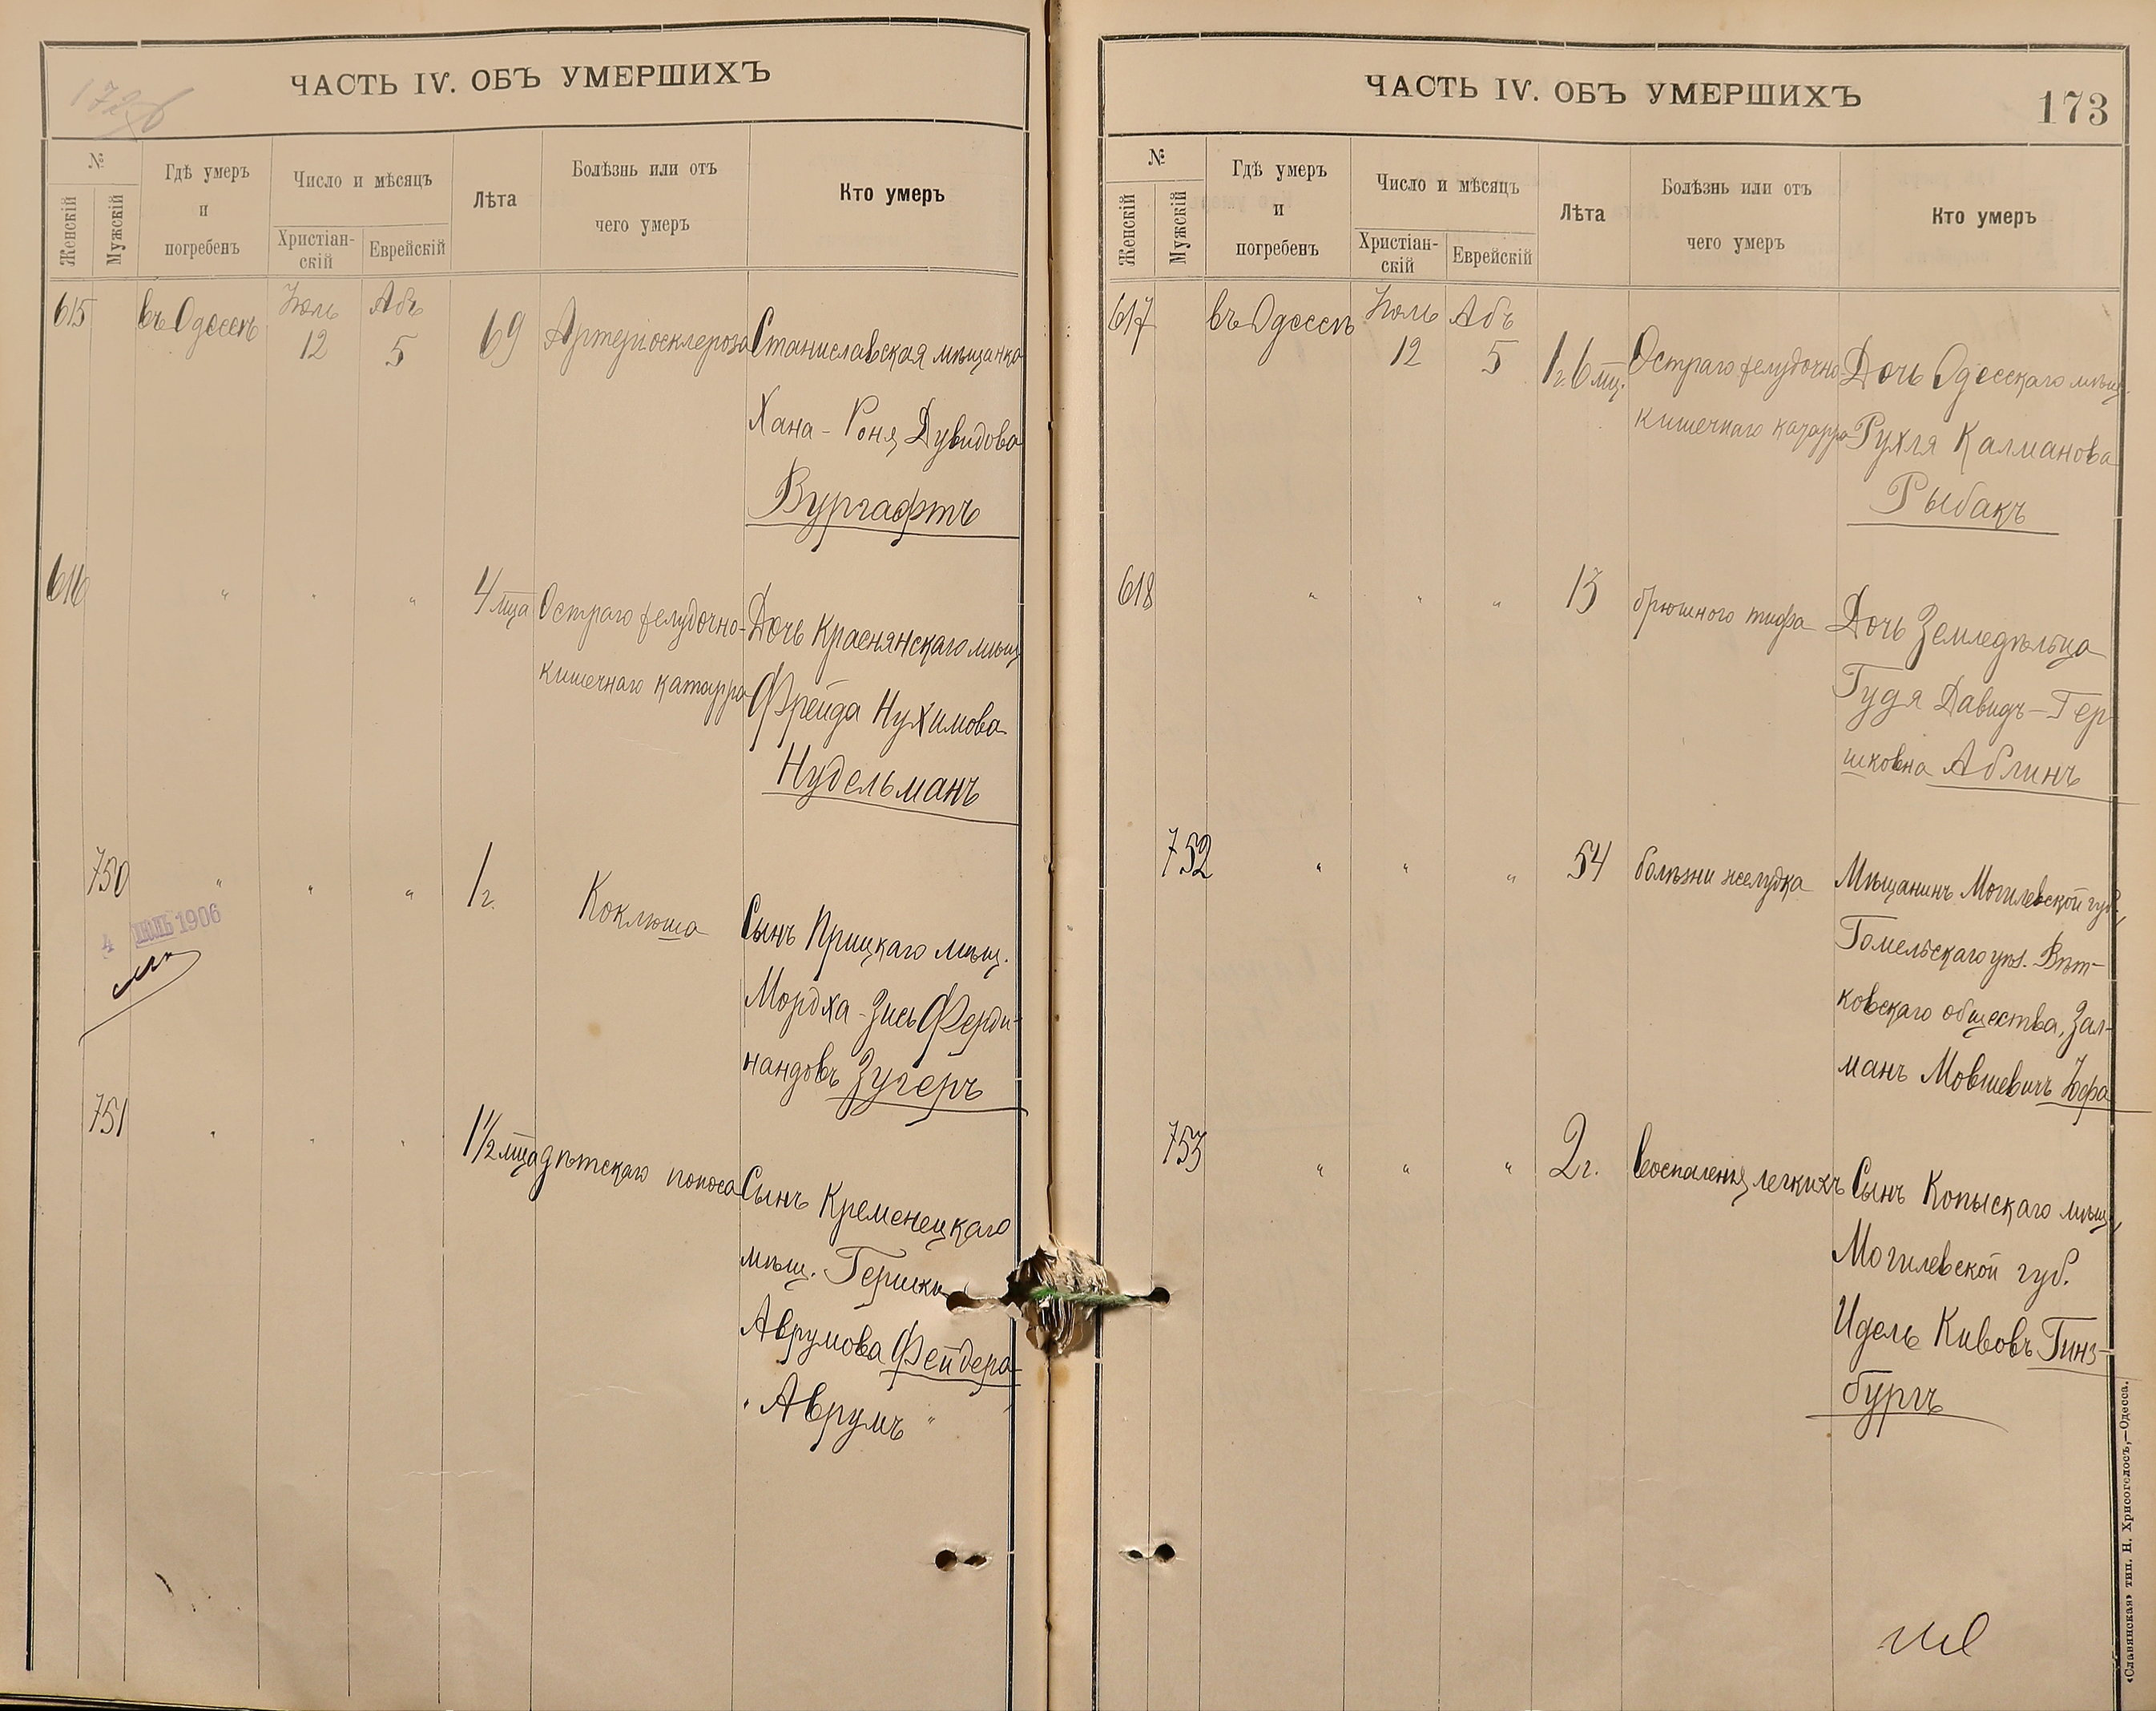 172об
ЧАСТЬ IV. ОБЪ УМЕРШИХЪ
№
Женскій
Мужскій
Гдѣ умеръ
и
погребенъ
Число и мѣсяцъ
Христіан-
скій
Еврейскій
Лѣта
Болѣзнь или отъ
чего умеръ
Кто умеръ
615 въ Одессѣ Іюль 12 Абъ 5 69 Артеріосклероза Станиславская мѣщанка
Хана-Роня Дувидова
Вургафтъ
616 " " " 4 мца Остраго желудочно- Дочь Краснянскаго мѣщ.
кишечнаго катарра Фрейда Нухимова
Нудельманъ
750 " " " 1 г. Коклюша Сынъ мѣщ.
4 1906
Мордха-Зись Ферди-
нандовъ Зугеръ
751 " " " 1½ мца дѣтскаго поноса Сынъ Кременецкаго
мѣщ. Гершки
Аврумова Фейдера
"Аврумъ"
ЧАСТЬ IV. ОБЪ УМЕРШИХЪ
173
№
Женскій
Мужскій
Гдѣ умеръ
и
погребенъ
Число и мѣсяцъ
Христіан-
скій
Еврейскій
Лѣта
Болѣзнь или отъ
чего умеръ
Кто умеръ
617 въ Одессѣ Іюль 12 Абъ 5 1 г. 6 мц. Остраго желудочно- Дочь Одесскаго мѣщ.
кишечнаго катарра Рухля Калманова
Рыбакъ
618 " " " 13 брюшного тифа Дочь Земледѣльца
Гудя Давидъ-Гер-
шковна Аблинъ
752 " " " 54 болѣзни желудка Мѣщанинъ Могилевской губ.,
Гомельскаго уѣз. Вѣт-
ковскаго общества, Зал-
манъ Мовшевичъ Іофа
753 " " " 2 г. воспаленія легкихъ Сынъ Копыскаго мѣщ.,
Могилевской губ.
Идель Кивовъ Гинз-
бургъ
«Славянская» тип. Н. Хрисогелосъ,—Одесса.